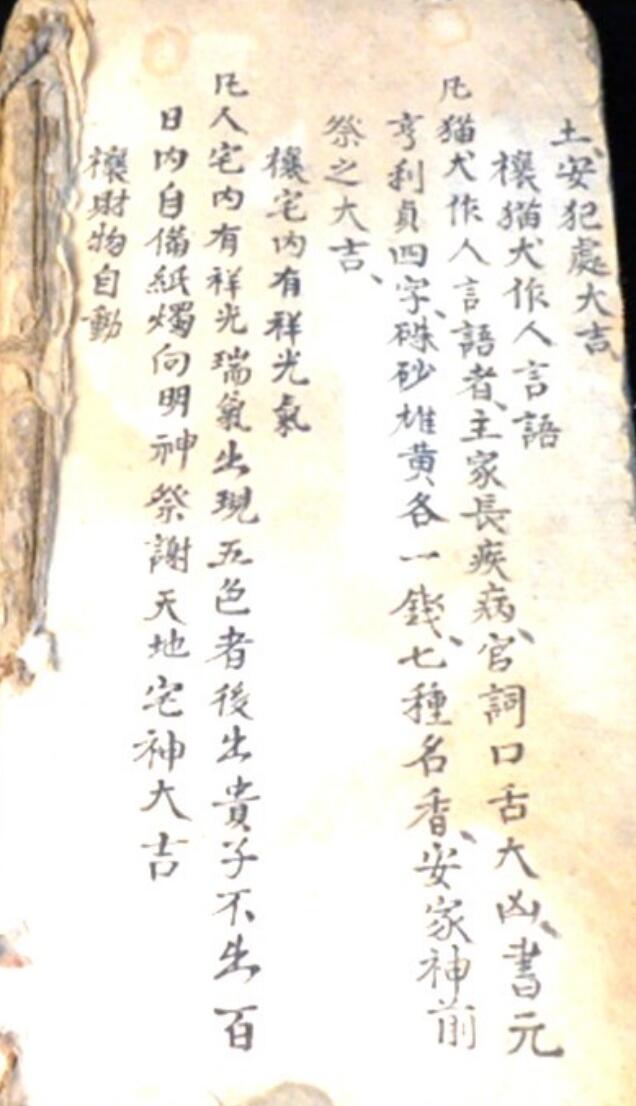 土、安犯處大吉、
禳猫犬作人言語
凡猫犬作人言語者、主家長疾病、官詞口舌大凶、書元
亨利貞四字、硃砂雄黄各一錢、七種名香、安家神前
祭之大吉、
禳宅内有祥光氣
凡人宅内有祥光瑞氣出現五色者後出貴子不出百
日内自備紙燭向明神祭謝天地宅神大吉
禳財物自動